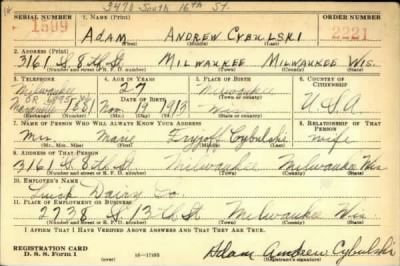 3478 South 16th St.
SERIAL NUMBER 1. NAME (Print) ORDER NUMBER
1599 ADAM ANDREW CYBULSKI 2221
(First) (Middle) (Last)
2. ADDRESS (Print)
3161 S. 8th St MILWAUKEE MILWAUKEE WIS.
(Number and street or R. F. D. number) (Town) (County) (State)
3. TELEPHONE 4. AGE IN YEARS 5. PLACE OF BIRTH 6. COUNTRY OF CITIZENSHIP
Milwaukee 27 Milwaukee
OR 5895 W DATE OF BIRTH (Town or county) U.S.A.
1881 Nov. 19 1913 Wis.
(Exchange) (Number) (Mo.) (Day) (Yr.) (State or country)
7. NAME OF PERSON WHO WILL ALWAYS KNOW YOUR ADDRESS 8. RELATIONSHIP OF THAT PERSON
Mrs Marie Cybulski wife
(Mr., Mrs., Miss) (First) (Middle) (Last)
9. ADDRESS OF THAT PERSON
3161 S. 8th St Milwaukee Milwaukee Wis
(Number and street or R. F. D. number) (Town) (County) (State)
10. EMPLOYER'S NAME
Luick Dairy Co.
11. PLACE OF EMPLOYMENT OR BUSINESS
2738 S. 13th St Milwaukee Wis.
(Number and street or R. F. D. number) (Town) (County) (State)
I AFFIRM THAT I HAVE VERIFIED ABOVE ANSWERS AND THAT THEY ARE TRUE.
REGISTRATION CARD
D. S. S. Form 1 (over) 16—17105 Adam Andrew Cybulski